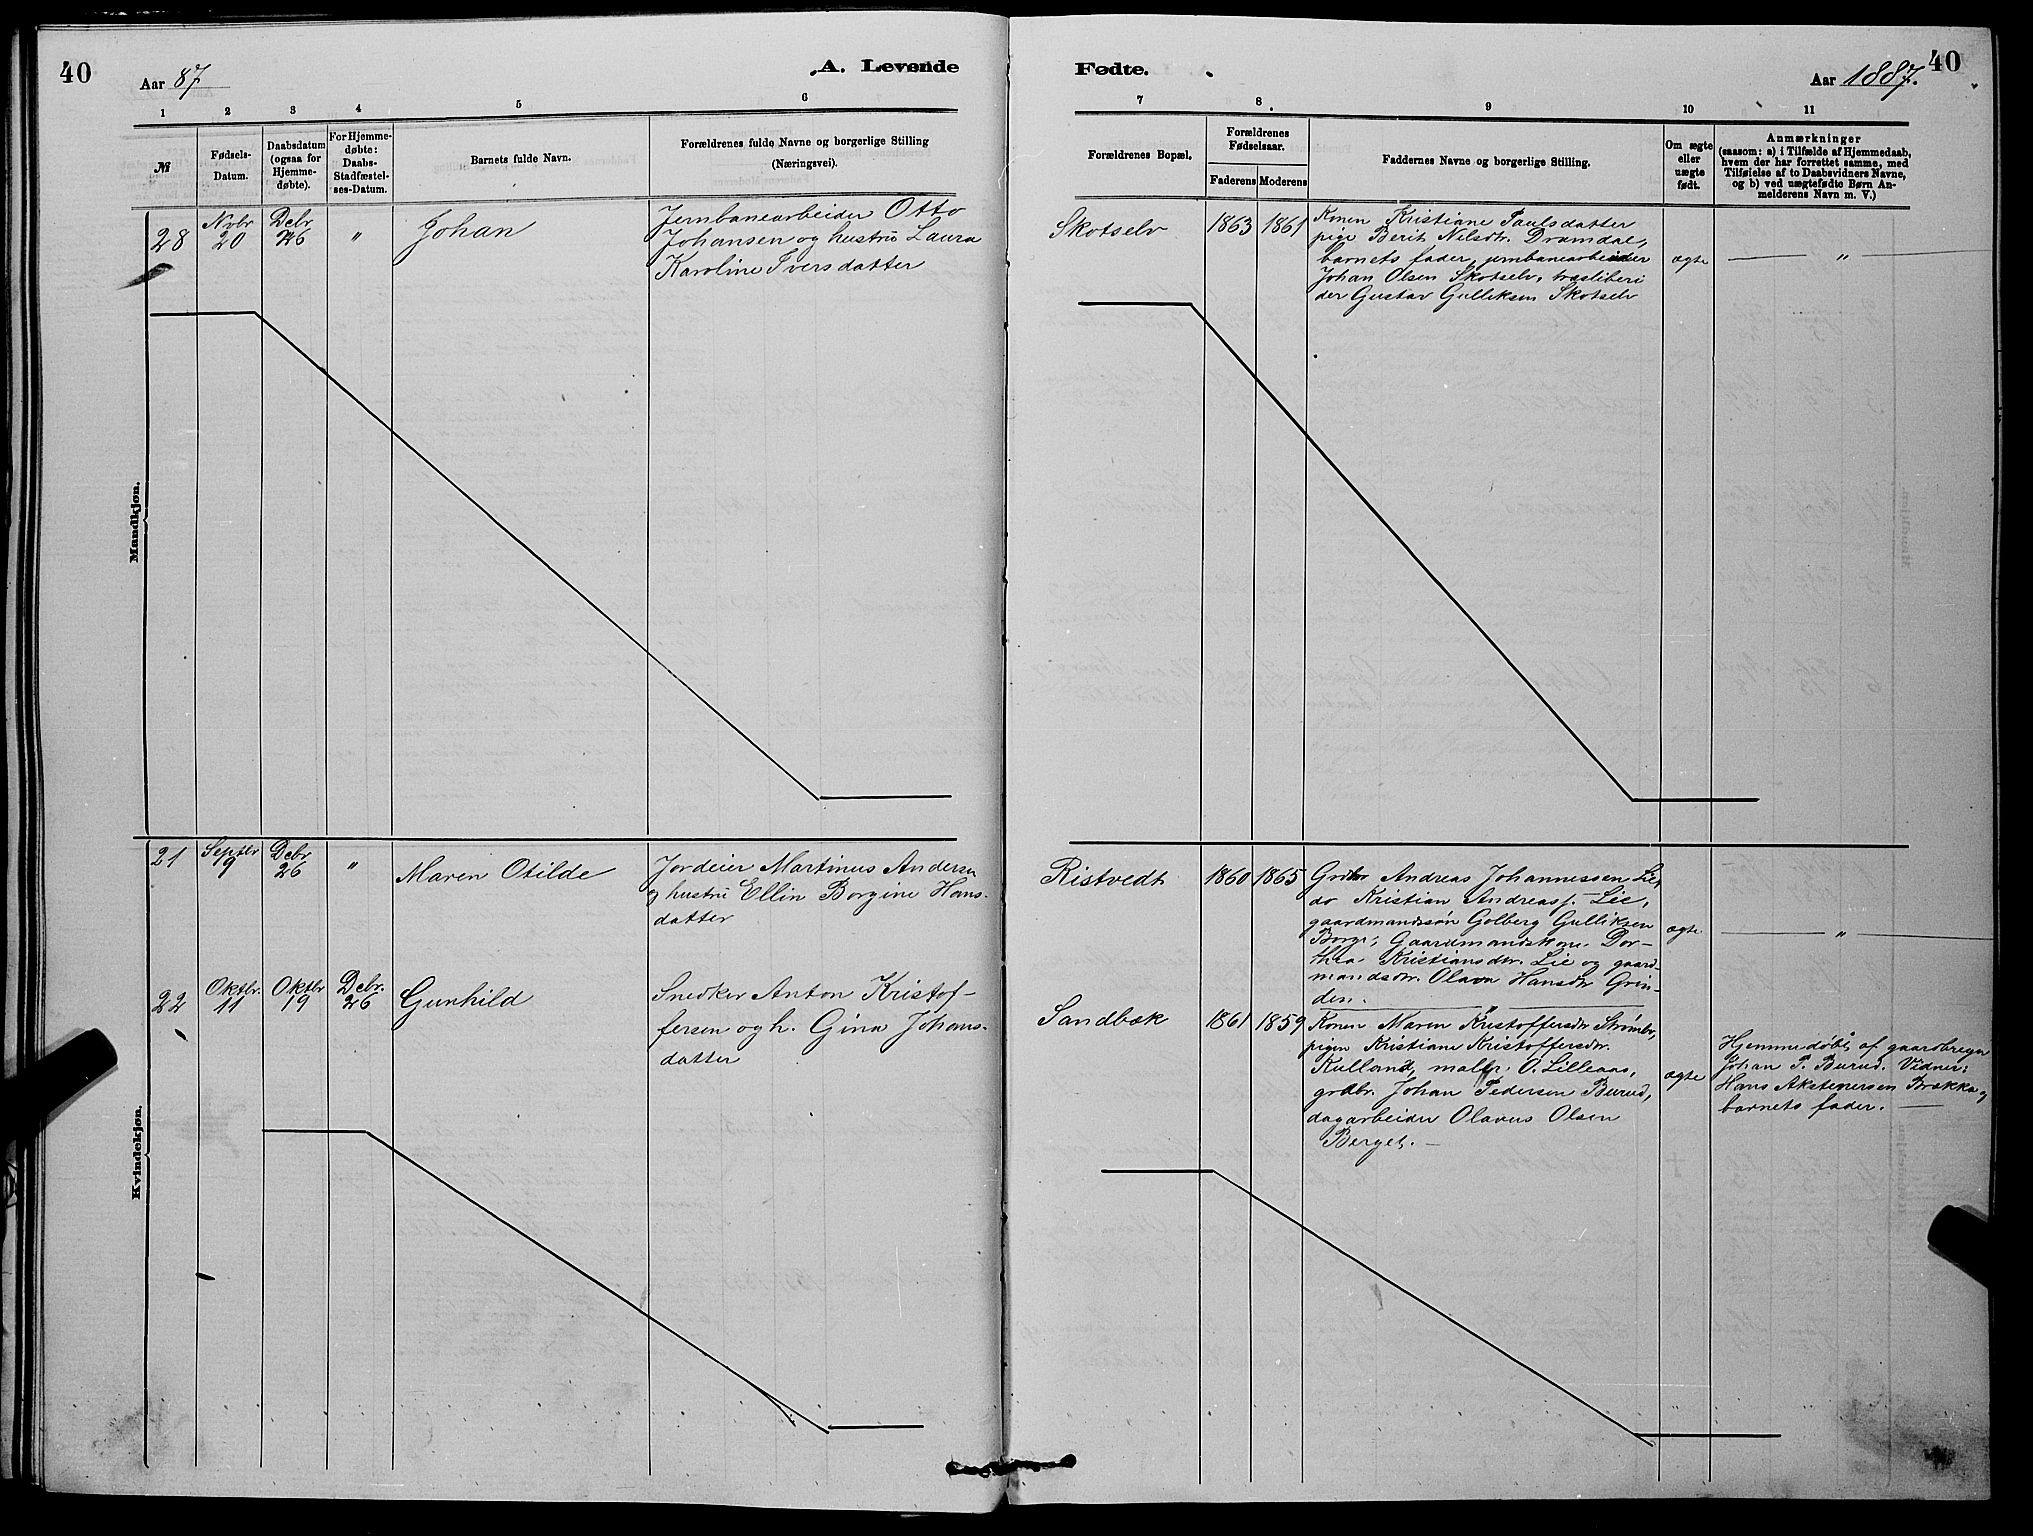 40
Aar 87
A. Levende
1 2 3 4 5 6
№
Fødsels-
Datum.
Daabsdatum
(ogsaa for
Hjemme-
døbte).
For Hjemme-
døbte:
Daabs-
Stadfæstel-
ses-Datum.
Barnets fulde Navn.
Forældrenes fulde Navne og borgerlige Stilling
(Næringsvei).
Mandkjøn.
28
Novbr
20
Debr
26
"
Johan
Jernbanearbeider Otto
Johansen og hustru Laura
Karoline Iversdatter
Kvindekjøn.
21
Septbr
9
Debr
26
"
Maren Otilde
Jordeier Martinus Andersen
og hustru Ellin Borgine Hans-
datter
22
Oktbr.
11
Oktbr
19
Debr.
26
Gunhild
Snedker Anton Kristof-
fersen og h. Gina Johans-
datter
Fødte.
Aar 1887.
40
7 8. 9 10 11
Forældrenes Bopæl.
Forældrenes
Fødselsaar.
Faderens Moderens
Faddernes Navne og borgerlige Stilling.
Om ægte
eller
uægte
født.
Anmærkninger
(saasom: a) i Tilfælde af Hjemmedaab,
hvem der har forrettet samme, med
Tilføielse af to Daabsvidners Navne,
og b) ved uægtefødte Børn An-
melderens Navn m. V.)
Skotselv
1863 1861
Konen Kristiane Paulsdatter
pige Berit Nilsdtr. Dramdal,
barnets fader, jernbanearbeider
Johan Olsen Skotselv, træsliberi
der Gustav Gulliksen Skotselv
ægte
"
Ristvedt
1860 1865
Andreas Johannessen Lie,
do Kristian Andreass. Lie,
gaardmandssøn Golberg Gulliksen
Borge, Gaardmandskone Dor-
thea Kristiansdtr. Lie og gaard-
mandsdtr. Olava Hansdtr Grin-
den.
ægte
"
Sandbæk
1861 1859
Konen Maren Kristoffersdtr Strømbo,
pigen Kristiane Kristoffersdtr.
Kulland, maler O. Lilleaas,
grdbr. Johan Pedersen Burud,
dagarbeider Olavus Olsen
Berget.
ægte
Hjemmedøbt af gaardbruger
Johan P. Burud. Vidner:
Hans Akstensen Brækka og
barnets fader.